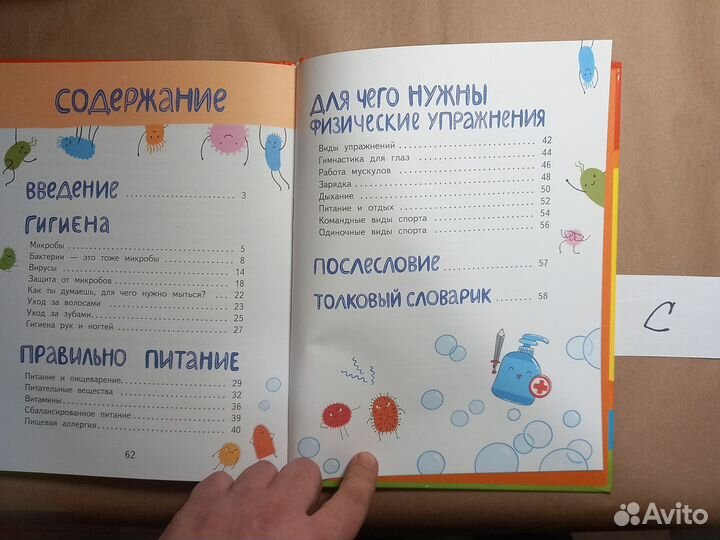 СОДЕРЖАНИЕ
ВВЕДЕНИЕ 3
ГИГИЕНА
Микробы 5
Бактерии — это тоже микробы 8
Вирусы 14
Защита от микробов 18
Как ты думаешь, для чего нужно мыться? 22
Уход за волосами 23
Уход за зубами 25
Гигиена рук и ногтей 27
ПРАВИЛЬНО ПИТАНИЕ
Питание и пищеварение 29
Питательные вещества 32
Витамины 36
Сбалансированное питание 39
Пищевая аллергия 40
62
ДЛЯ ЧЕГО НУЖНЫ
ФИЗИЧЕСКИЕ УПРАЖНЕНИЯ
Виды упражнений 42
Гимнастика для глаз 44
Работа мускулов 46
Зарядка 48
Дыхание 50
Питание и отдых 52
Командные виды спорта 54
Одиночные виды спорта 56
ПОСЛЕСЛОВИЕ 57
ТОЛКОВЫЙ СЛОВАРИК 58
С
Avito